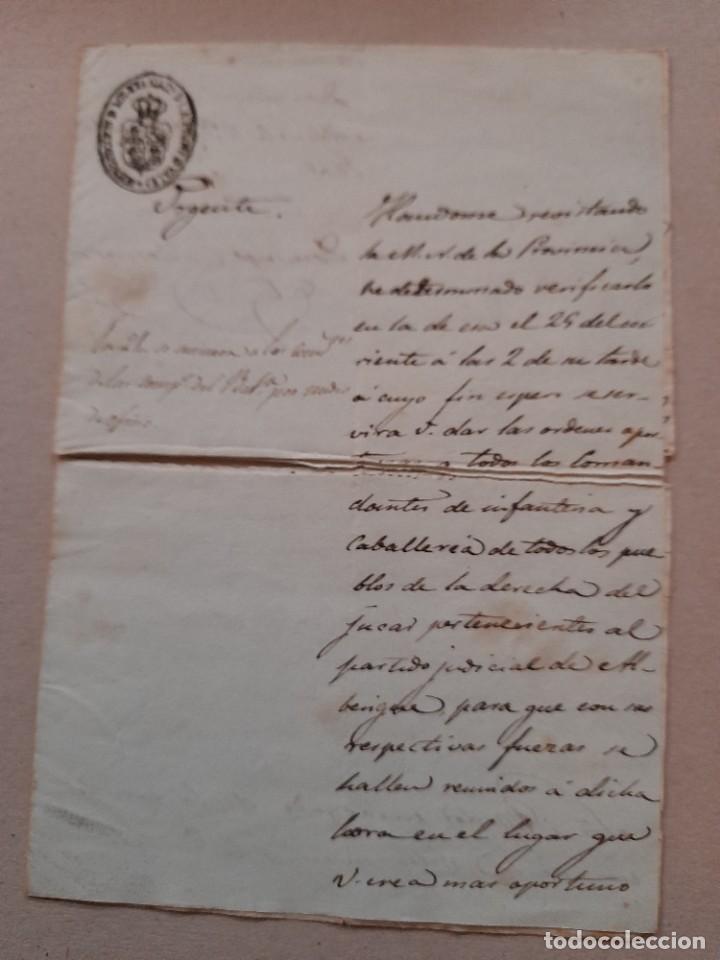 Urgente.
Hallandome revistando
la M. N. de la Provincia,
he determinado verificarlo
en la de esa el 25 del cor
riente á las 2 de su tarde
á cuyo fin espero se ser-
virá V. dar las ordenes opor
tunas a todos los Coman-
dantes de infanteria y
caballeria de todos los pue
blos de la derecha del
Jucar pertenecientes al
partido judicial de Al-
berique, para que con sus
respectivas fuerzas se
hallen reunidos á dicha
hora en el lugar que
V. crea mas oportuno
de las comp.s del Bat.n por medio
de oficio
todocoleccion.net